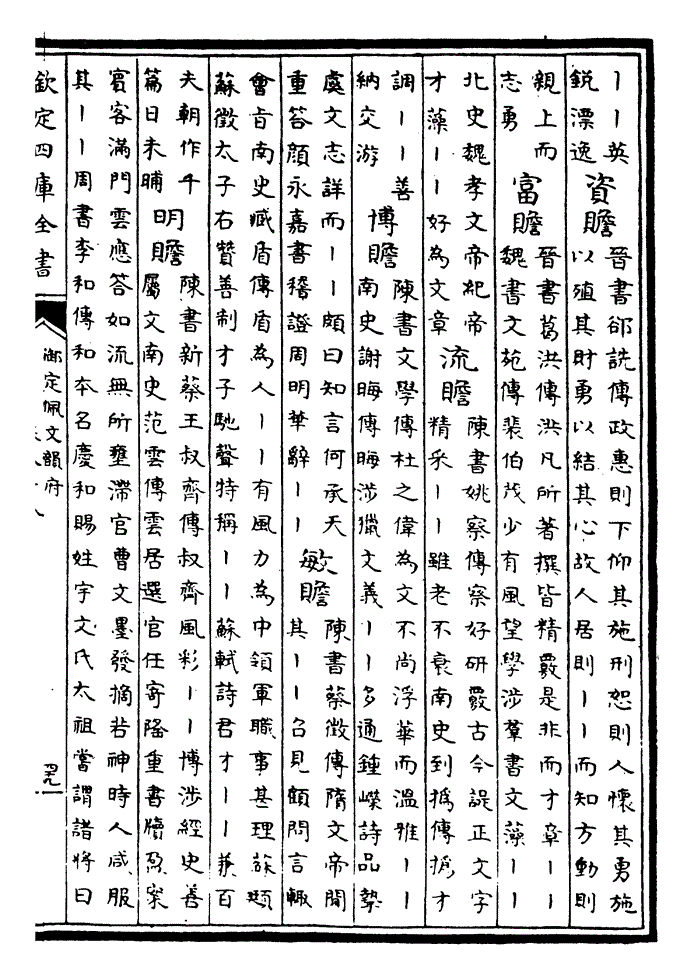 丨丨英
鋭漂逸
資贍
晉書郤詵傳政惠則下仰其施刑恕則人懷其勇施
以殖其財勇以結其心故人居則丨丨而知方動則
親上而
志勇
富贍
晉書葛洪傳洪凡所著撰皆精覈是非而才章丨丨
魏書文苑傳裴伯茂少有風望學涉羣書文藻丨丨
北史魏孝文帝紀帝
才藻丨丨好為文章
流贍
陳書姚察傳察好研覈古今諟正文字
精采丨丨雖老不衰南史到撝傳撝才
調丨丨善
納交游
博贍
陳書文學傳杜之偉為文不尚浮華而溫雅丨丨
南史謝晦傳晦涉獵文義丨丨多通鍾嶸詩品勢
處文志詳而丨丨頗曰知言何承天
重答顔永嘉書稽證周明華辭丨丨
敏贍
陳書蔡徵傳隋文帝聞
其丨丨召見顧問言輒
會旨南史臧盾傳盾為人丨丨有風力為中領軍職事甚理蘇頲
蘇徵太子右贊善制才子馳聲特稱丨丨蘇軾詩君才丨丨兼百
夫朝作千
篇日未晡
明贍
陳書新蔡王叔齊傳叔齊風彩丨丨博涉經史善
屬文南史范雲傳雲居選官任寄隆重書牘盈案
賓客滿門雲應答如流無所壅滯官曹文墨發摘若神時人咸服
其丨丨周書李和傳和本名慶和賜姓宇文氏太祖嘗謂諸将曰
欽定四庫全書
御定佩文韻府
四九